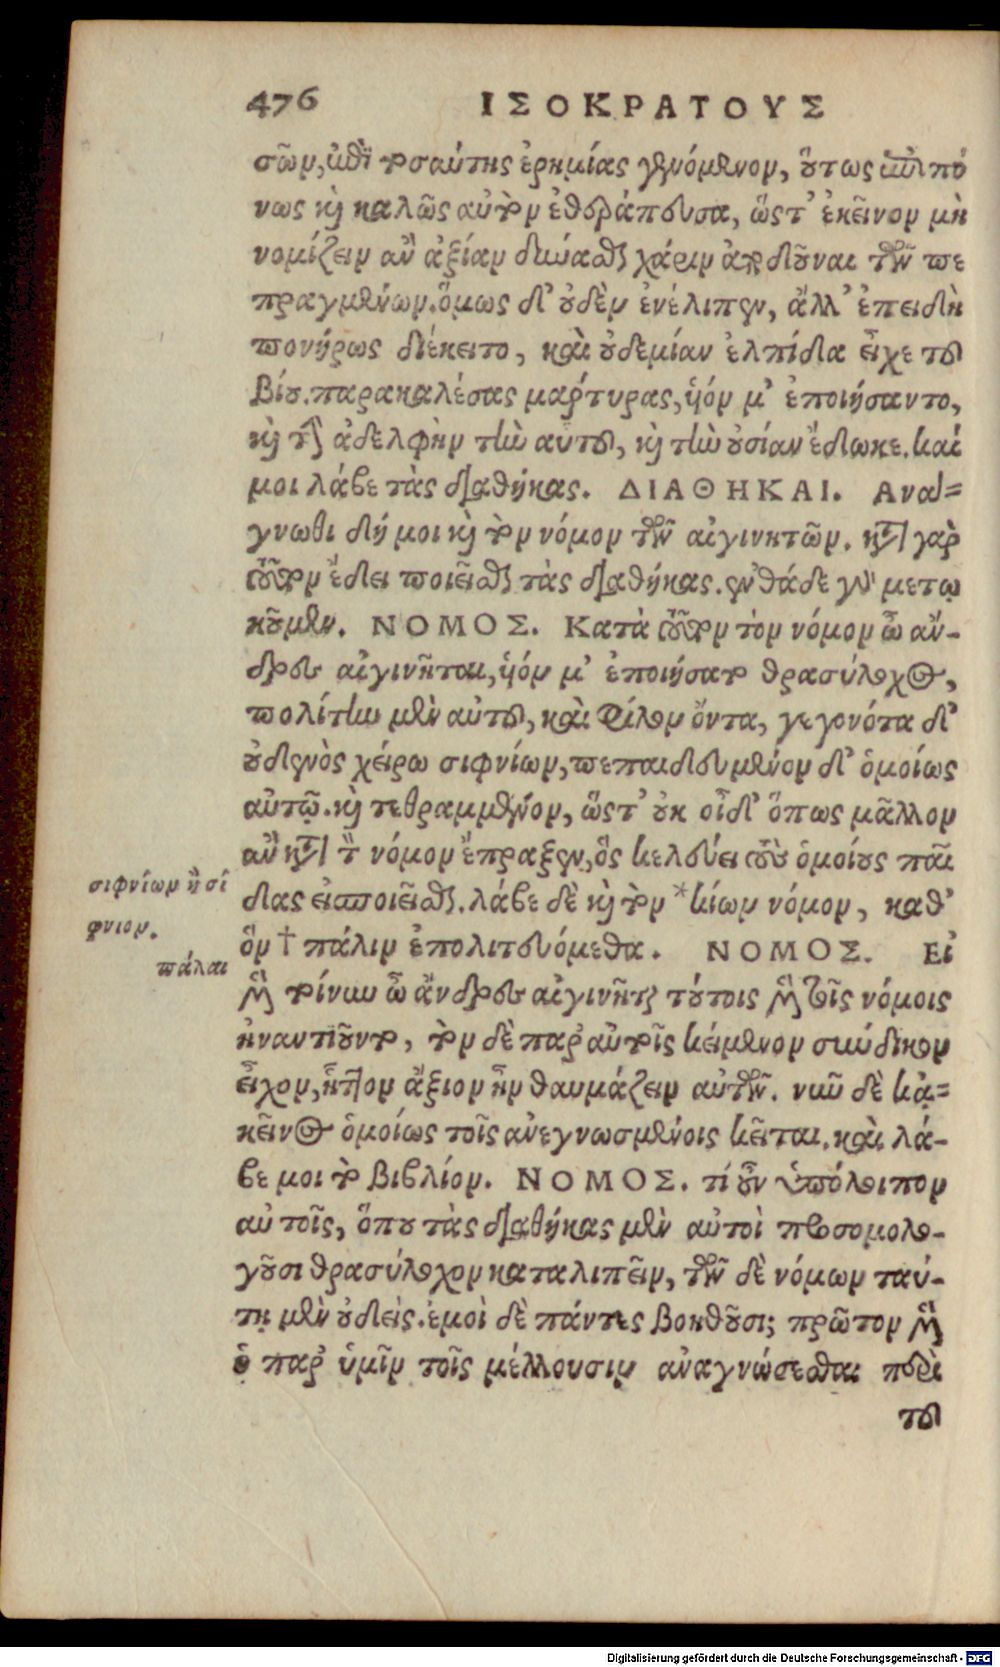 476 ΙΣΟΚΡΑΤΟΥΣ
σῶν, ἐπὶ τοσαύτης ἐρημίας γενόμενον, οὕτως ἐπιπό
νως καὶ καλῶς αὐτὸν ἐθεράπευσα, ὥστ' ἐκεῖνον μὴ
νομίζειν ἂν ἀξίαν δύνασθαι χάριν ἀποδοῦναι τῶν πε
πραγμένων. ὅμως δ' οὐδὲν ἐνέλιπεν, ἀλλ' ἐπειδὴ
πονήρως διέκειτο, καὶ οὐδεμίαν ἐλπίδα εἶχε τοῦ
βίου. παρακαλέσας μάρτυρας, ὑόν μ' ἐποιήσαντο,
καὶ τὴν ἀδελφὴν τὴν αυτοῦ, καὶ τὴν οὐσίαν ἔδωκε. καί
μοι λάβε τὰς διαθήκας. ΔΙΑΘΗΚΑΙ. Ανά=
γνωθι δή μοι καὶ τὸν νόμον τῶν αἰγινητῶν. κατὰ γὰρ
τοῦτον ἔδει ποιεῖσθαι τὰς διαθήκας. ἐνθάδε γὰρ μετῳ
κοῦμεν. ΝΟΜΟΣ. Κατὰ τοῦτον τὸν νόμον ὦ ἄν-
δρες αἰγινῆται, ὑόν μ' ἐποιήσατο θρασύλοχος,
πολίτην μὲν αὐτοῦ, καὶ φίλον ὄντα, γεγονότα δ'
οὐδενὸς χείρω σιφνίων, πεπαιδευμένον δ' ὁμοίως
αὐτῷ. καὶ τεθραμμένον, ὥστ' οὐκ οἶδ' ὅπως μᾶλλον
ἂν κατὰ τὸν νόμον ἔπραξεν, ὃς κελεύει τοὺς ὁμοίους παῖ
δας εἰσποιεῖσθαι. λάβε δὲ καὶ τὸν *κίων νόμον, καθ'
ὃν † πάλιν ἐπολιτευόμεθα. ΝΟΜΟΣ. Εἰ
μὲν τοίνυν ὦ ἄνδρες αἰγινῆται τούτοις μὲν τοῖς νόμοις
ἠναντιοῦντο, τὸν δὲ παρ' αὐτοῖς κείμενον σύνδικον
εἶχον, ἧττον ἄξιον ἦν θαυμάζειν αὐτῶν. νῦν δὲ κἀ=
κεῖνος ὁμοίως τοῖς ἀνεγνωσμένοις κεῖται. καὶ λά-
βε μοι τὸ βιβλίον. ΝΟΜΟΣ. τί οὖν ὑπόλοιπον
αὐτοῖς, ὅπου τὰς διαθήκας μὲν αὐτοὶ προσομολο-
γοῦσι θρασύλοχον καταλιπεῖν, τῶν δὲ νόμων τού-
τῃ μὲν οὐδεὶς. ἐμοὶ δὲ πάντες βοηθοῦσι; πρῶτον μὲν
ὁ παρ' ὑμῖν τοῖς μέλλουσιν ἀναγνώσεσθαι περὶ
τοῦ
σιφνίων ἢ σί
φνιον.
πάλαι
Digitalisierung gefördert durch die Deutsche Forschungsgemeinschaft - DFG